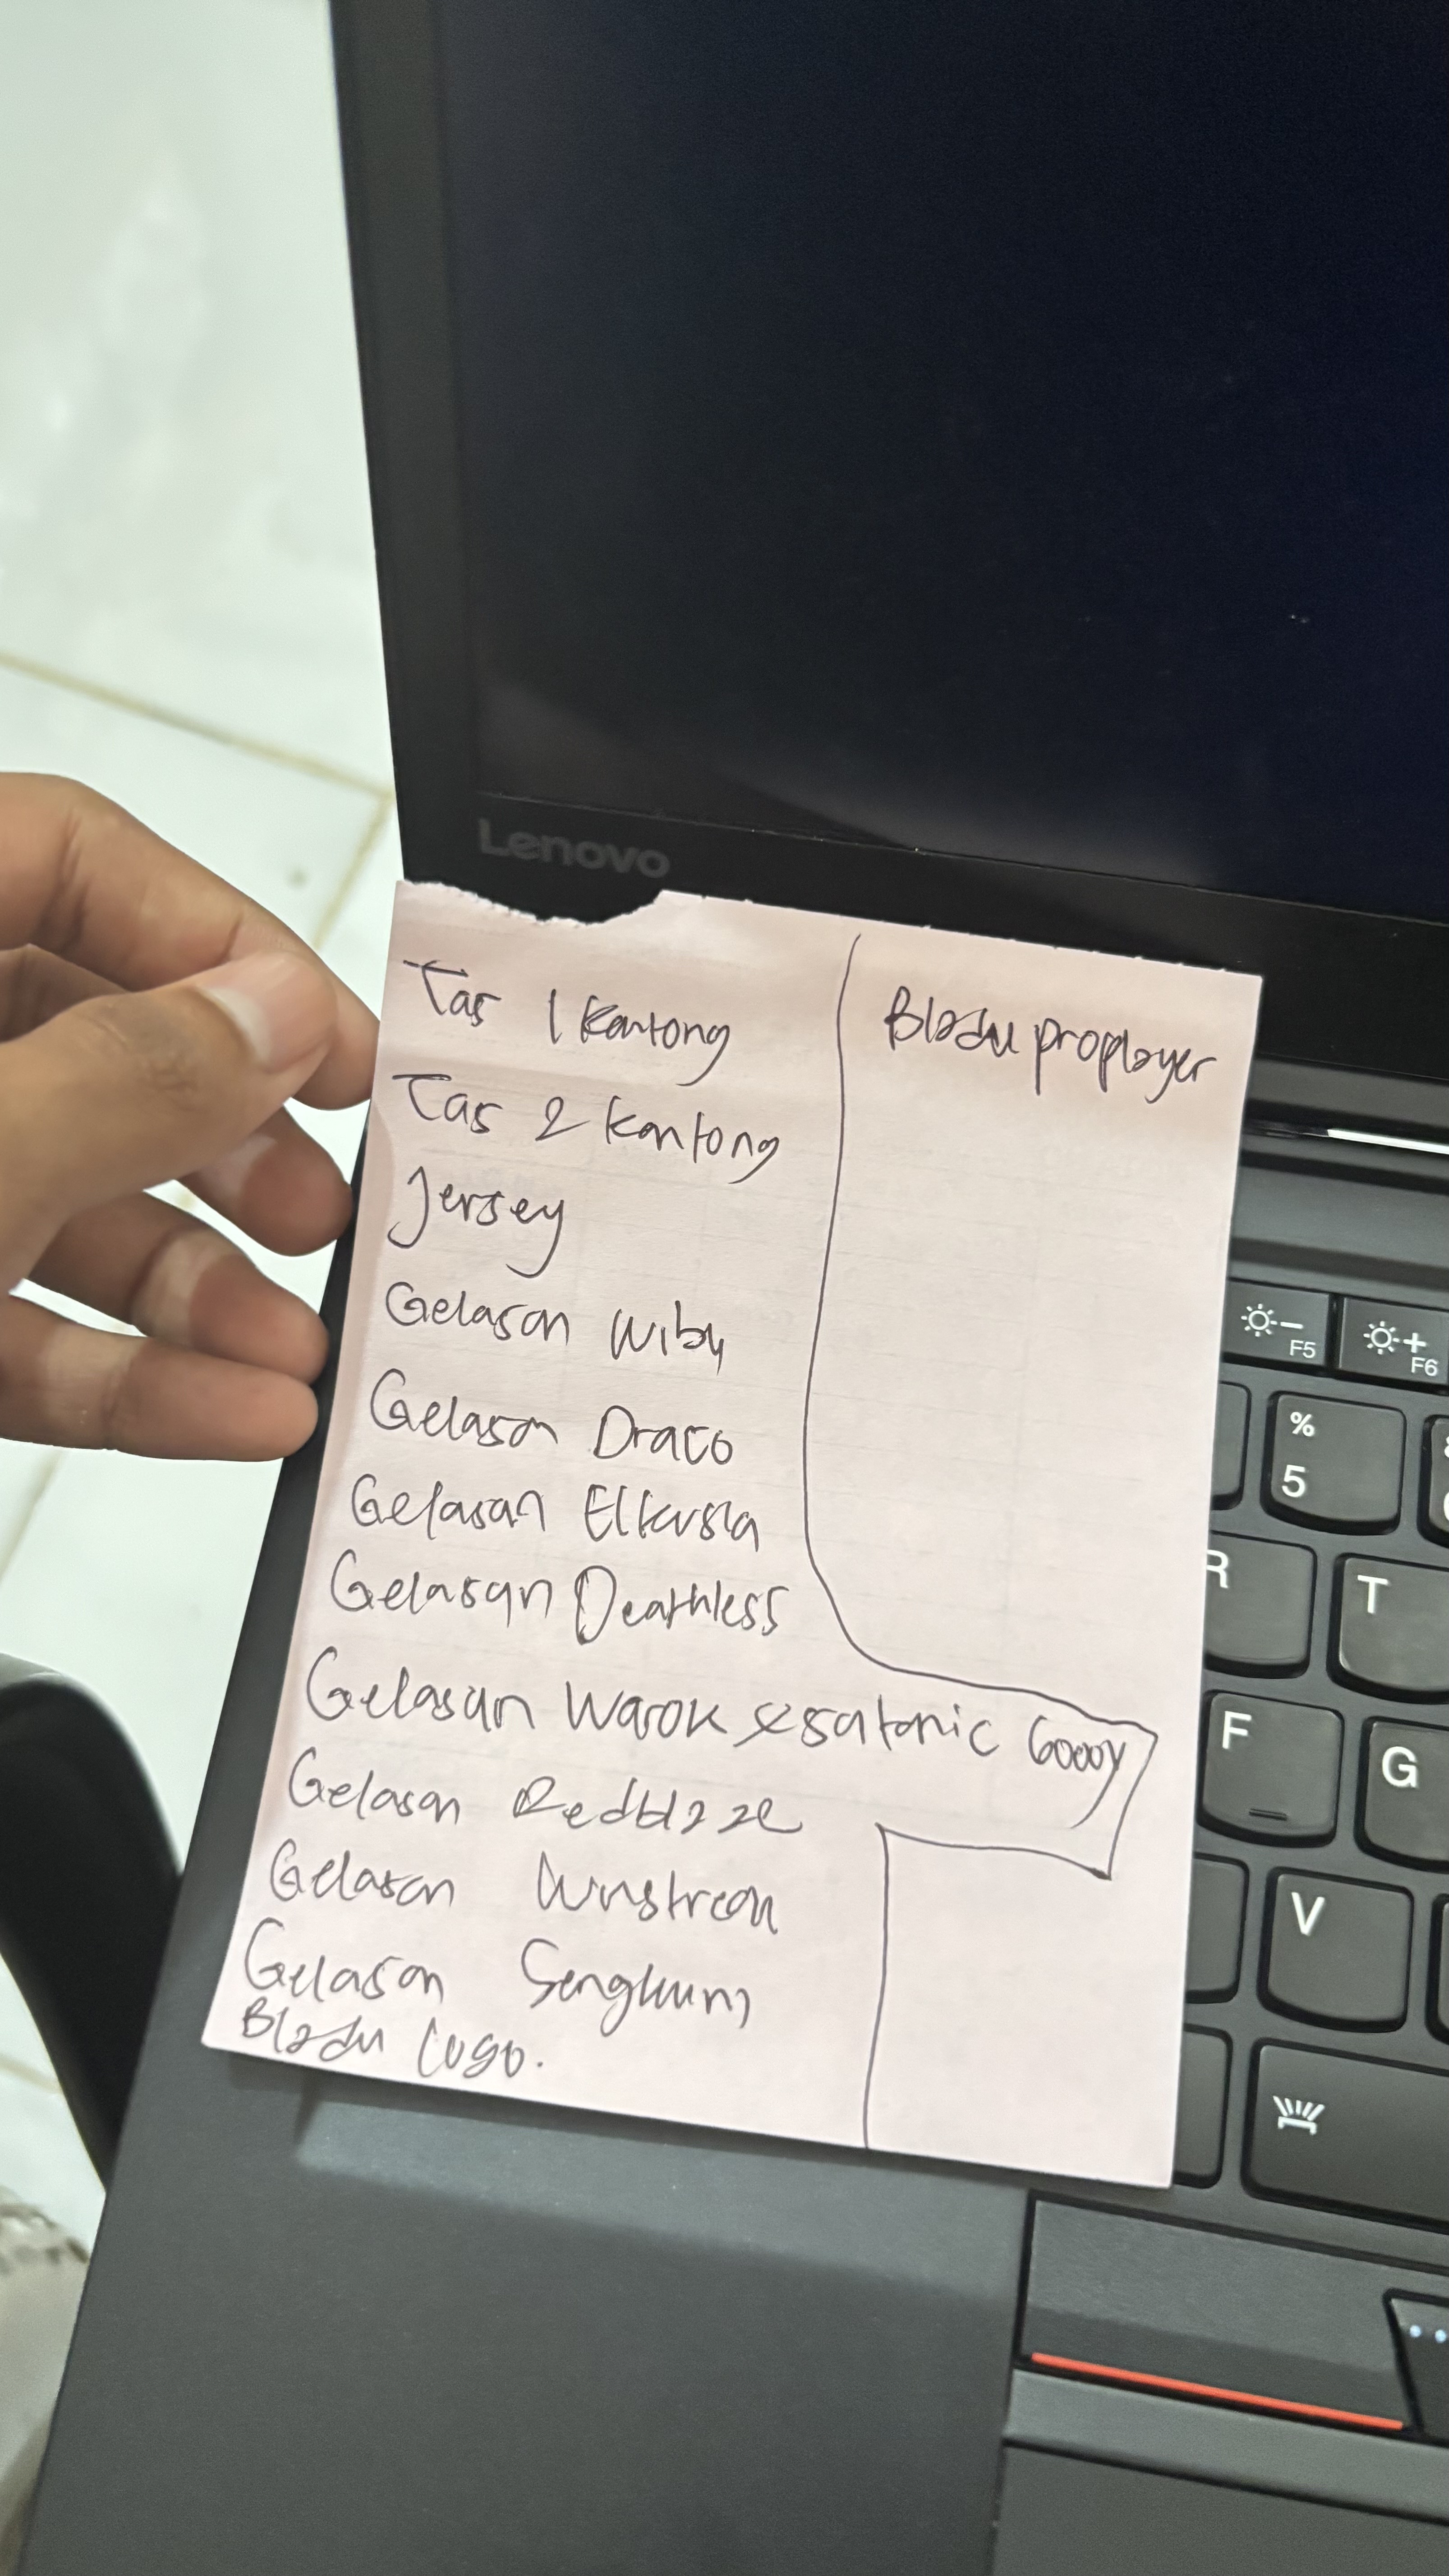 Lenovo
Tas 1 Kantong
Tas 2 kantong
Jersey
Gelasan Wibu
Gelasan Draco
Gelasan Elkusa
Gelasan Deathless
Gelasan Warok & satanic 6000y
Gelasan Redblaze
Gelasan
Gelasan Sengkuni
Bladu Logo.
Bladu proplayer
F5
F6
%
5
R
T
F
G
V